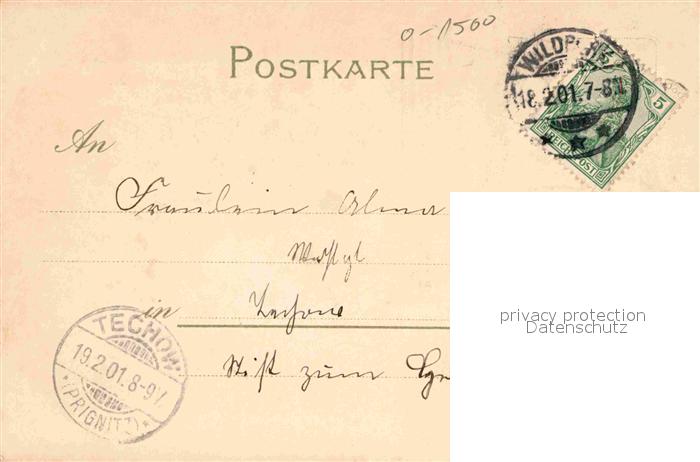 0-1500
POSTKARTE
WILDP
18.2.01.7-8N.
5
REICHSPOST
An
Fräulein Alma
in Techow
Stift zum
TECHOW
19.2.01.8-9V.
*(PRIGNITZ)*
privacy protection
Datenschutz